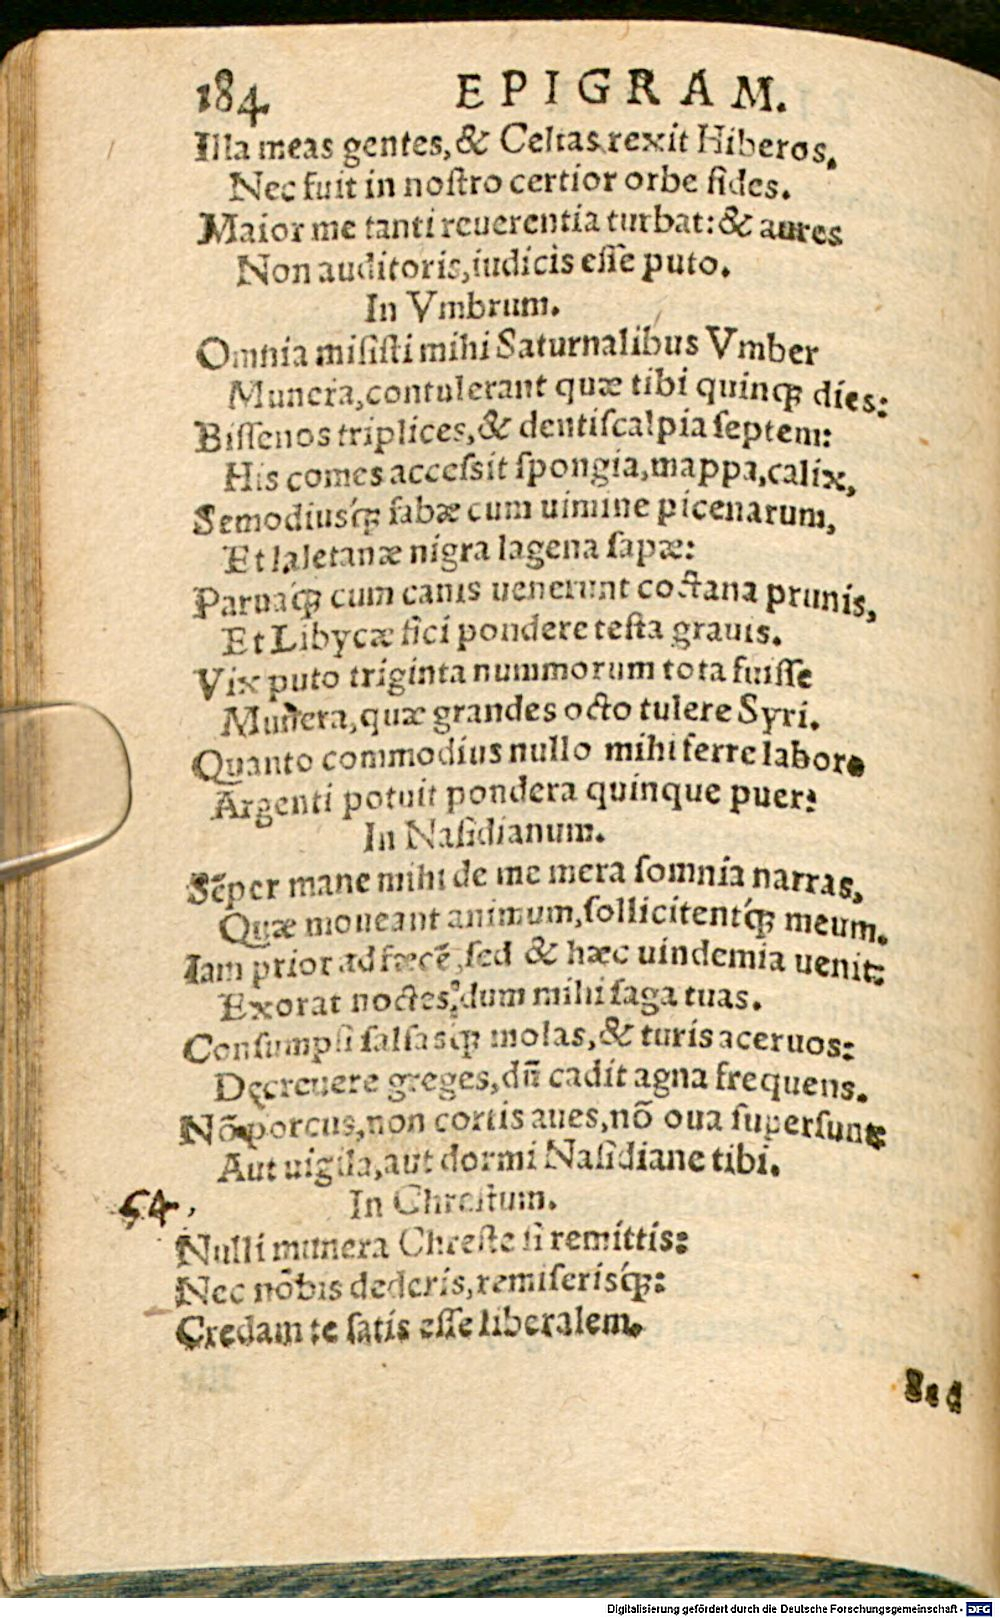 184. EPIGRAM.
Illa meas gentes, & Celtas rexit Hiberos,
Nec fuit in noſtro certior orbe fides.
Maior me tanti reuerentia turbat: & aures
Non auditoris, iudicis eſſe puto.
In Vmbrum.
Omnia miſiſti mihi Saturnalibus Vmber
Munera, contulerant quæ tibi quinq; dies:
Biſſenos triplices, & dentiſcalpia ſeptem:
His comes acceſsit ſpongia, mappa, calix,
Semodiusq́; fabæ cum uimine picenarum,
Et laletanæ nigra lagena ſapæ:
Paruáq́; cum canis uenerunt coctana prunis,
Et Libycæ fici pondere teſta grauis.
Vix puto triginta nummorum tota fuiſſe
Munera, quæ grandes octo tulere Syri.
Quanto commodius nullo mihi ferre labore
Argenti potuit pondera quinque puer?
In Naſidianum.
Sēper mane mihi de me mera ſomnia narras,
Quæ moueant animum, ſollicitentq́; meum.
Iam prior ad fæcē, ſed & hæc uindemia uenit:
Exorat noctes, dum mihi ſaga tuas.
Conſumpſi ſalſasq́; molas, & turis aceruos:
Decreuere greges, dū cadit agna frequens.
Nō porcus, non cortis aues, nō oua ſuperſunt:
Aut uigila, aut dormi Naſidiane tibi.
54. In Chreſtum.
Nulli munera Chreſte ſi remittis:
Nec nobis dederis, remiſerisq́;:
Credam te ſatis eſſe liberalem.
Sed
Digitalisierung gefördert durch die Deutsche Forschungsgemeinschaft - DFG